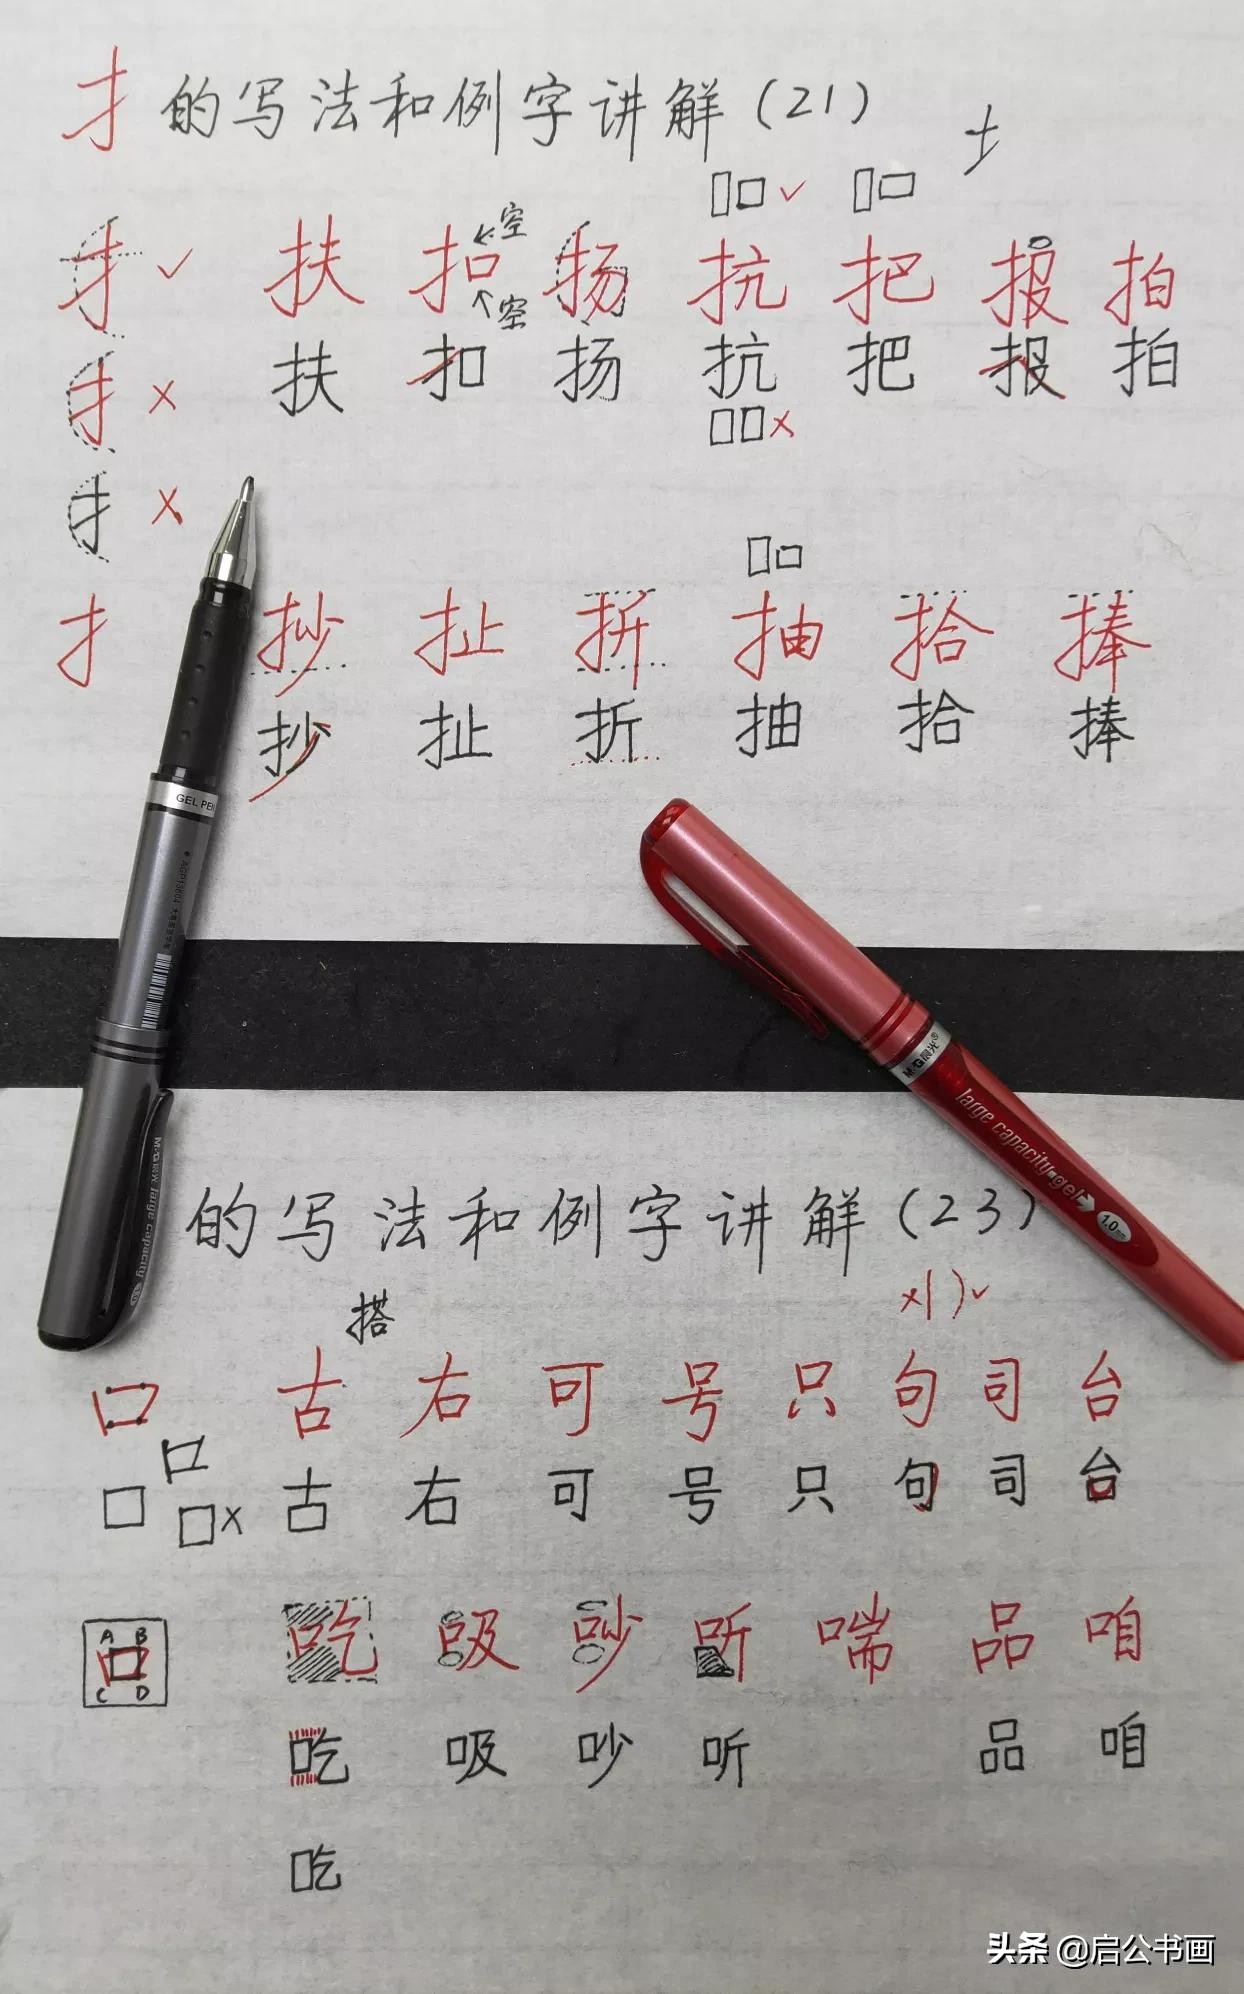 扌的写法和例字讲解(21)
扌✓ 扶 扣 空 空 扬 抗 ✓ 把 报 拍
扌× 扶 扣 扬 抗 × 把 报 拍
扌×
扌 抄 扯 拼 抽 拾 捧
抄 扯 折 抽 拾 捧
GEL PEN
AGP13604
M&G 晨光 large capacity
M&G 晨光®
large capacity gel
1.0
的写法和例字讲解(23)
搭 × ✓
口 古 右 可 号 只 句 司 台
口
口 口× 古 右 可 号 只 句 司 台
A B
口 吃 吸 吵 听 喘 品 咱
C D
吃 吸 吵 听 品 咱
吃
头条 @启公书画